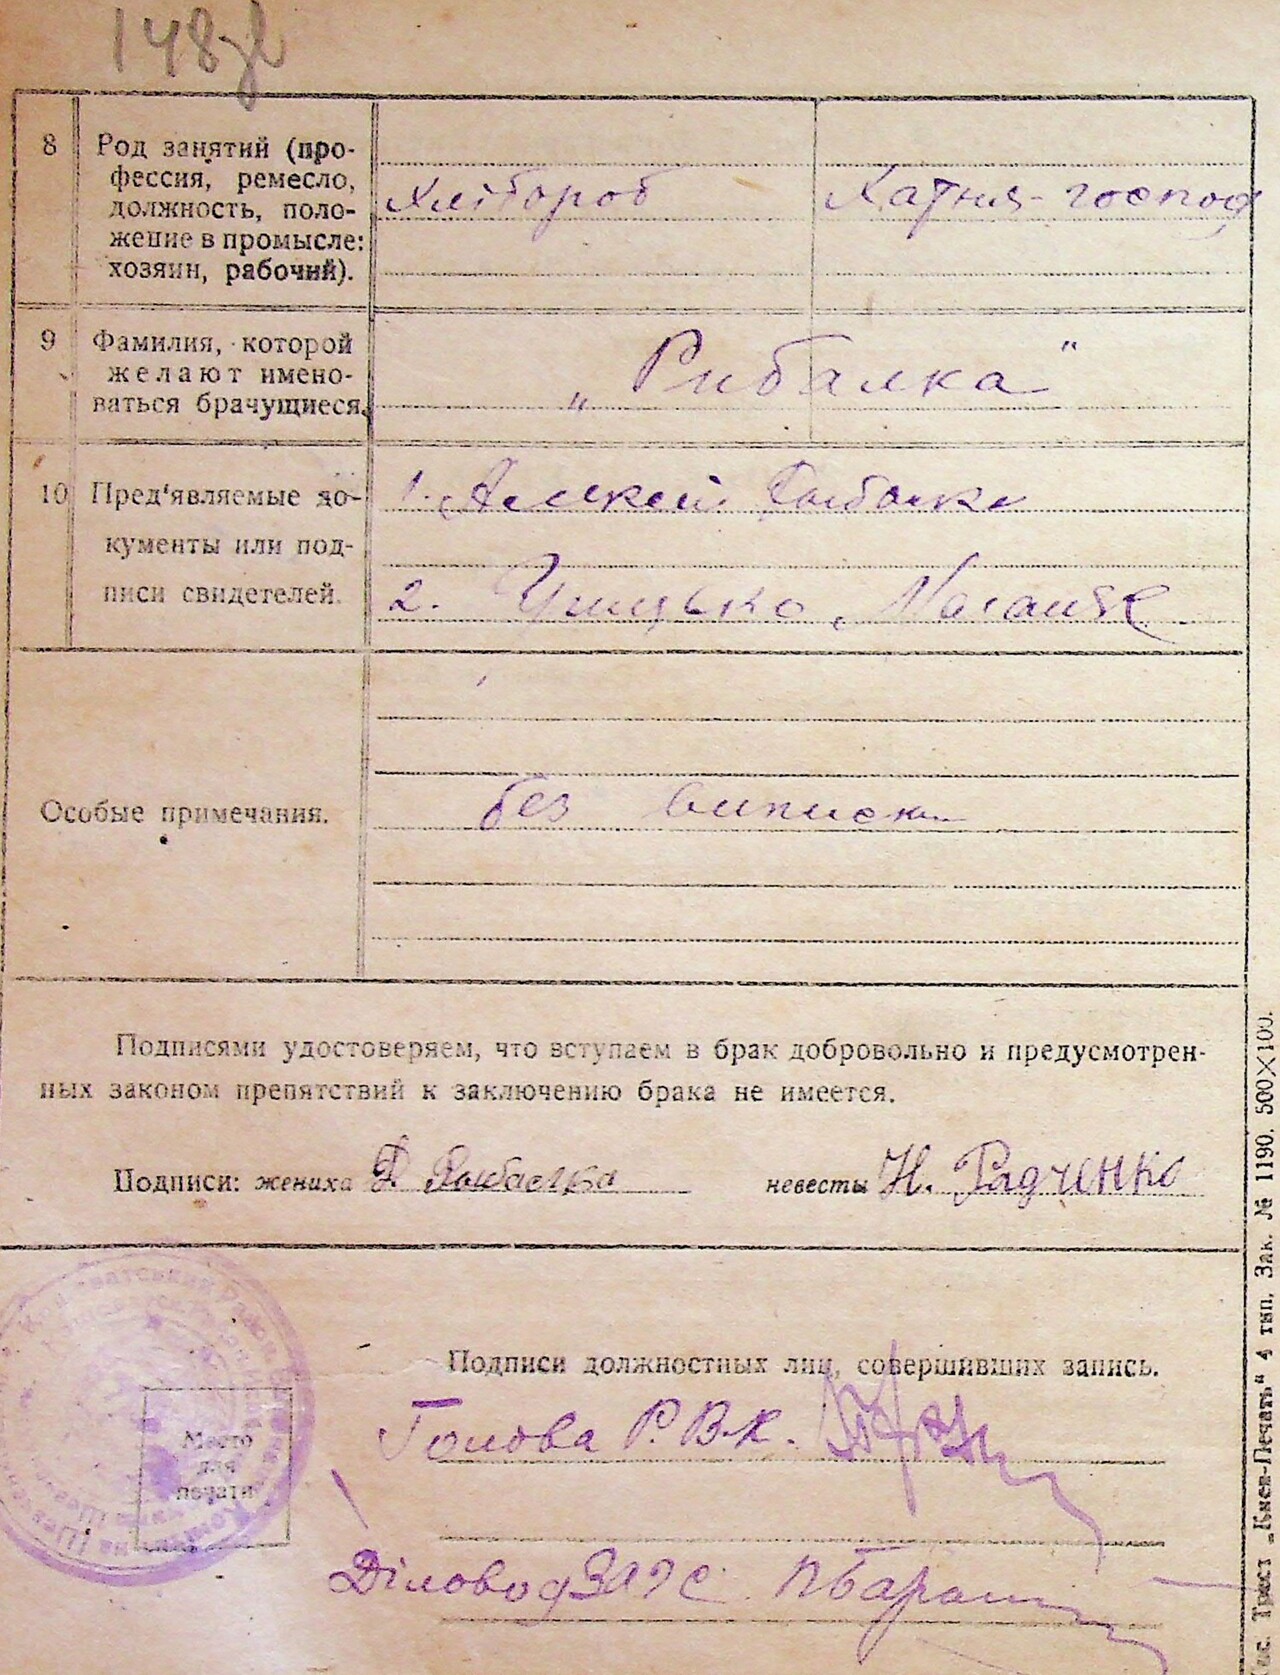 148
8 Род занятий (про-
фессия, ремесло,
должность, поло-
жение в промысле:
хозяин, рабочий).
Хлібороб Хатня-господ
9 Фамилия, которой
желают имено-
ваться брачущиеся.
„Рибалка"
10 Пред'являемые до-
кументы или под-
писи свидетелей.
1. Алексей Рыбалка
2.
Особые примечания.
без виписки
Подписями удостоверяем, что вступаем в брак добровольно и предусмотрен-
ных законом препятствий к заключению брака не имеется.
Подписи: жениха Рыбалка невесты Н. Радченко
Подписи должностных лиц, совершивших запись.
Голова Р.В.К.
Место
для
печати
Діловод ЗАГС
Трест „Киев-Печать" 4 тип. Зак. № 1190. 500×100.